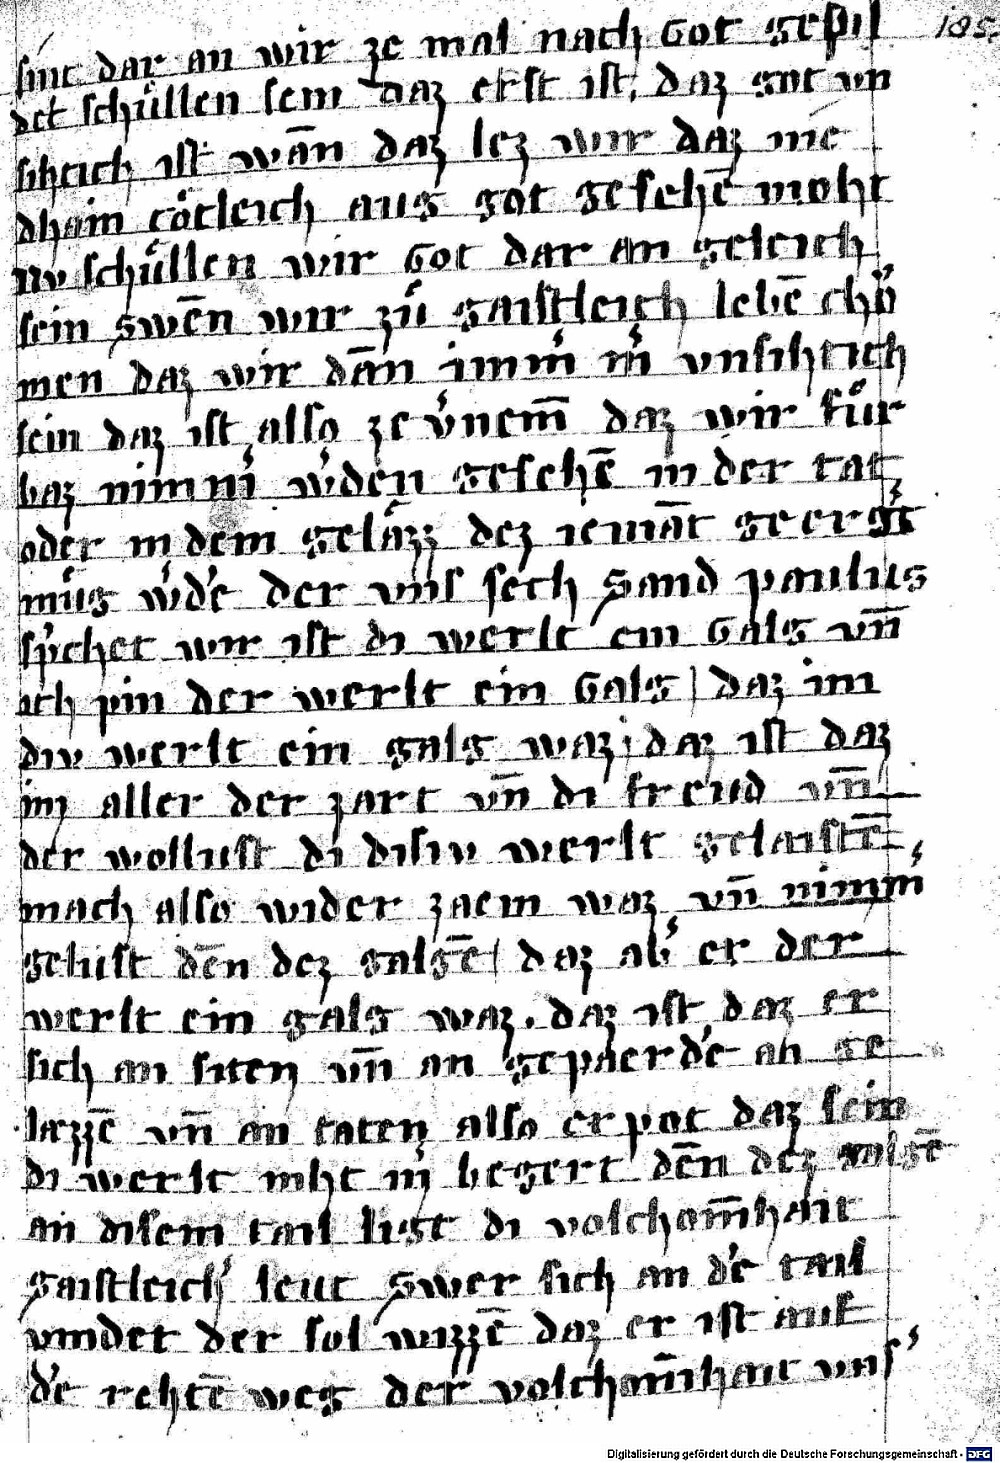 sint dar an wir ze mal nach Got gepil 185.
det schüllen sein daz erst ist. daz got vn
sihtich ist wān daz lez wir daz nie
dhain tötleich aug got gesehē moht
Nv schüllen wir Got dar an geleich
sein swēn wir zů gaistleich lebē chö
men daz wir dān imm̄ m̄ vnsihtich
sein daz ist also ze v̓nem̄ daz wir für
baz nimm̓ w̓den gesehē in der tat
oder in dem geläzz dez iemāt geerg̓t
müg w̓dē der vns sech Sand paulus
sp̓chet wir ist di werlt ein Galg vn̄
ich pin der werlt ein Galg daz im
div werlt ein galg waz daz ist daz
im aller der zart vn̄ di freud vn̄
der wollust di disiv werlt gelaistē
mach also wider zaem waz vn̄ nimm̓
gelust dēn dez galgē daz ab̓ er der
werlt ein galg waz. daz ist daz er
sich an siten vn̄ an gepaerdē an ge
læzzē vn̄ an taten also erpot daz sein
di werlt niht m̓ begert dēn dez galgē
an disem tail ligt di volchom̄hait
gaistleich̓ leut Swer sich an dē tail
vindet der sol wizzē daz er ist auf
dē rehtē weg der volchom̄hait vns̓
Digitalisierung gefördert durch die Deutsche Forschungsgemeinschaft - DFG